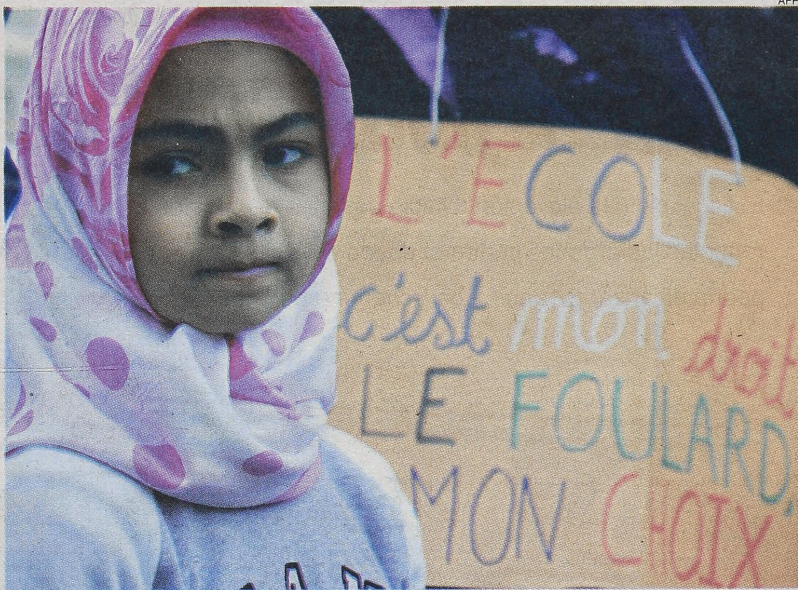 AFP
L'ECOLE
c'est mon droit
LE FOULARD,
MON CHOIX